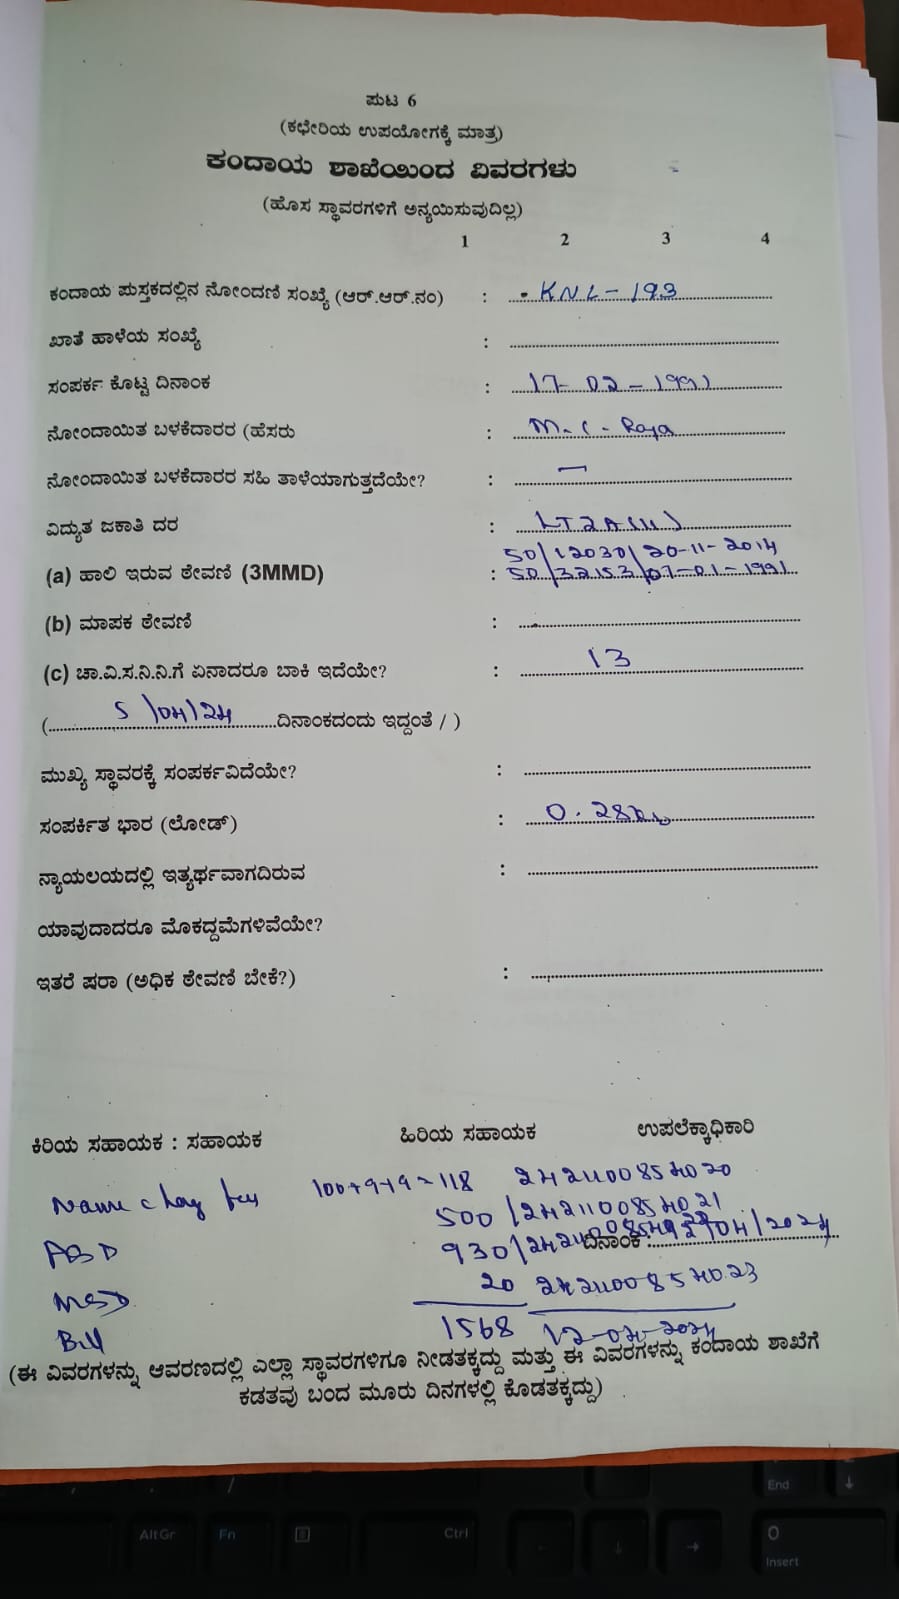 ಪುಟ 6
(ಕಛೇರಿಯ ಉಪಯೋಗಕ್ಕೆ ಮಾತ್ರ)
ಕಂದಾಯ ಶಾಖೆಯಿಂದ ವಿವರಗಳು
(ಹೊಸ ಸ್ಥಾವರಗಳಿಗೆ ಅನ್ವಯಿಸುವುದಿಲ್ಲ)
1 2 3 4
ಕಂದಾಯ ಪುಸ್ತಕದಲ್ಲಿನ ನೋಂದಣಿ ಸಂಖ್ಯೆ (ಆರ್.ಆರ್.ನಂ) : KNL-193
ಖಾತೆ ಹಾಳೆಯ ಸಂಖ್ಯೆ :
ಸಂಪರ್ಕ ಕೊಟ್ಟ ದಿನಾಂಕ : 17-02-1991
ನೋಂದಾಯಿತ ಬಳಕೆದಾರರ (ಹೆಸರು : M.C. Raja
ನೋಂದಾಯಿತ ಬಳಕೆದಾರರ ಸಹಿ ತಾಳೆಯಾಗುತ್ತದೆಯೇ? : –
ವಿದ್ಯುತ ಜಕಾತಿ ದರ : LT2A(ii)
50/12030/20-11-2014
(a) ಹಾಲಿ ಇರುವ ಠೇವಣಿ (3MMD) : 50/32153/07-01-1991
(b) ಮಾಪಕ ಠೇವಣಿ :
(c) ಚಾ.ವಿ.ಸ.ನಿ.ನಿ.ಗೆ ಏನಾದರೂ ಬಾಕಿ ಇದೆಯೇ? : 13
(5/04/24 ದಿನಾಂಕದಂದು ಇದ್ದಂತೆ / )
ಮುಖ್ಯ ಸ್ಥಾವರಕ್ಕೆ ಸಂಪರ್ಕವಿದೆಯೇ? :
ಸಂಪರ್ಕಿತ ಭಾರ (ಲೋಡ್) : 0.28
ನ್ಯಾಯಲಯದಲ್ಲಿ ಇತ್ಯರ್ಥವಾಗದಿರುವ :
ಯಾವುದಾದರೂ ಮೊಕದ್ದಮೆಗಳಿವೆಯೇ?
ಇತರೆ ಷರಾ (ಅಧಿಕ ಠೇವಣಿ ಬೇಕೆ?) :
ಕಿರಿಯ ಸಹಾಯಕ : ಸಹಾಯಕ ಹಿರಿಯ ಸಹಾಯಕ ಉಪಲೆಕ್ಕಾಧಿಕಾರಿ
Name chang fees 100+9+9=118 2421100854020
500/2421100854021
ABD 930/ ದಿನಾಂಕ: /04/2024
MSD 20 2421100854023
Bill 1568 12-04-2024
(ಈ ವಿವರಗಳನ್ನು ಆವರಣದಲ್ಲಿ ಎಲ್ಲಾ ಸ್ಥಾವರಗಳಿಗೂ ನೀಡತಕ್ಕದ್ದು ಮತ್ತು ಈ ವಿವರಗಳನ್ನು ಕಂದಾಯ ಶಾಖೆಗೆ
ಕಡತವು ಬಂದ ಮೂರು ದಿನಗಳಲ್ಲಿ ಕೊಡತಕ್ಕದ್ದು)
AltGr Fn Ctrl End 0 Insert